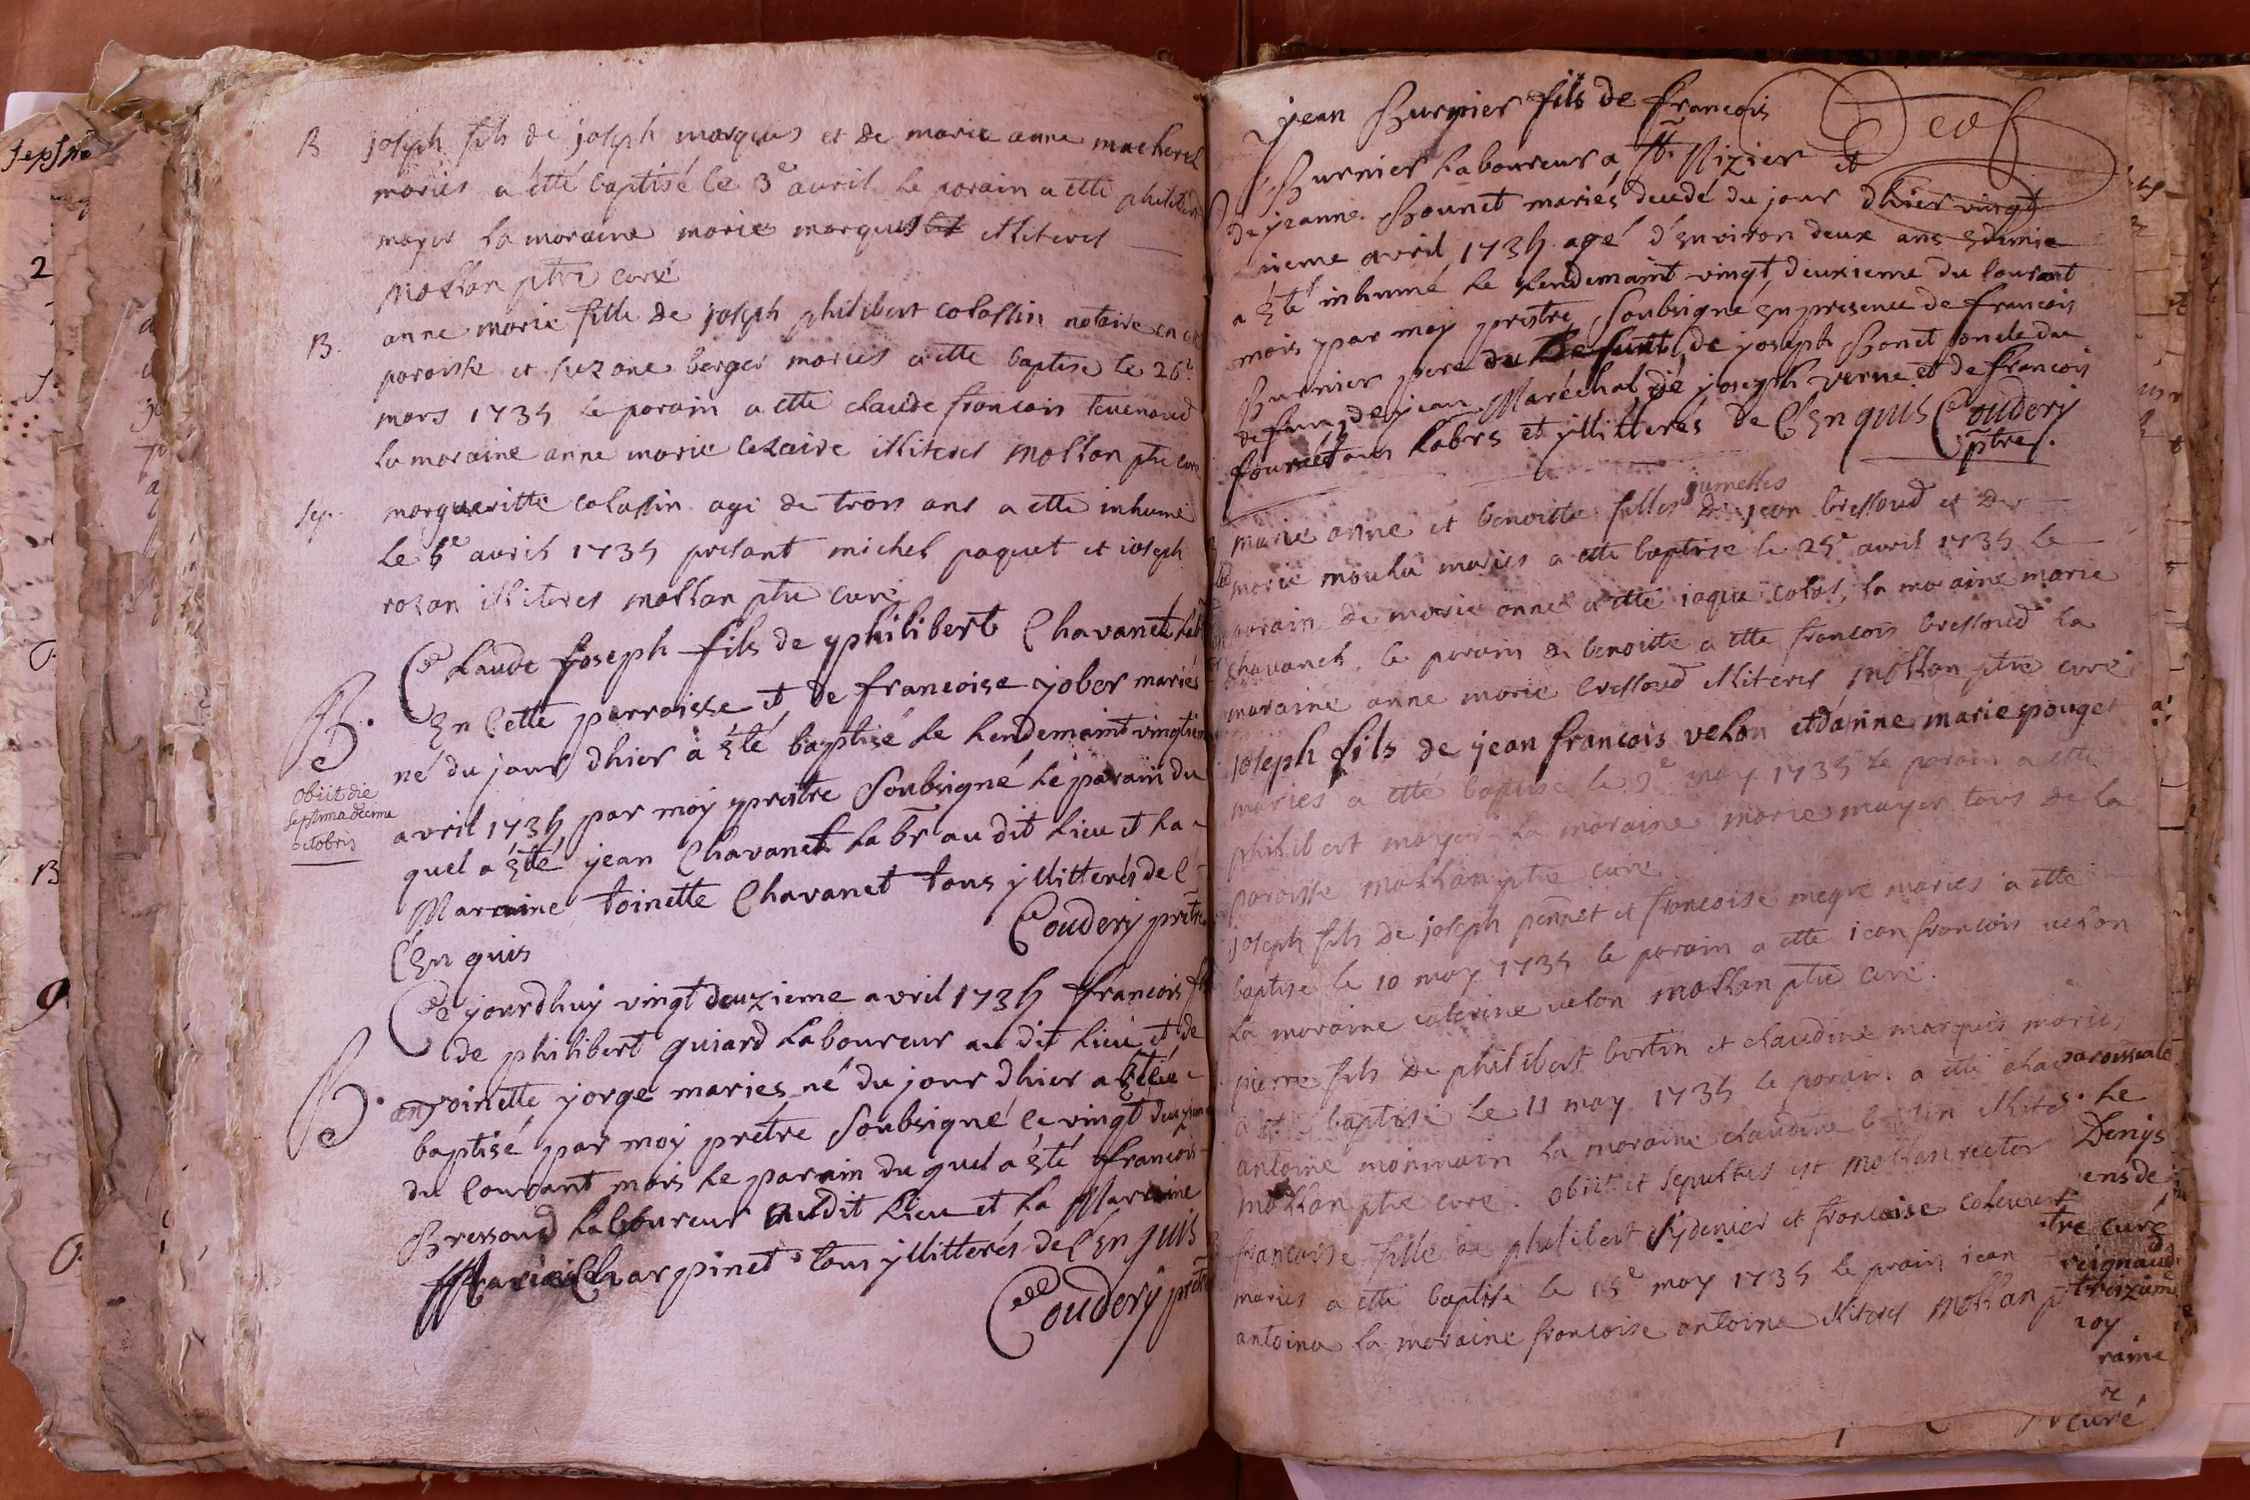 B joseph fils de joseph marquis et de marie anne macheret
mariés a étté baptisé le 3e avril le parain a etté philibert
mayer la maraine marie marquis illiteres
Mollan ptre curé
B. anne marie fille de joseph philibert colassin notaire en ce
paroisse et suzane berger mariés a etté baptise le 26e
mars 1735 le parain a etté claude francois
la maraine anne marie illiteres Mollan ptre curé
sep. margueritte colassin agé de trois ans a etté inhumé
le 6e avril 1735 présant michel paquet et joseph
rozan illiteres mollan ptre curé
B. Claude Joseph fils de philibert Chavanet lab
En Cette parroisse et de francoise jober mariés
né du jour dhier à Eté baptisé le lendemaint vingtiem
avril 1735 par moy prestre Soubsigné le parain du
quel a Eté jean Chavanet labr au dit lieu et la
Maraine toinette Chavanet tous yllitterés de C
Enquis Coudery pretre
obiit die
septima decima
octobris
B. Ce jourdhuy vingt deuzieme avril 1735 francois fils
de philibert guiard laboureur au dit lieu et de
antoinette jorge maries né du jour dhier a Eté
baptisé par moy prétre Soubsigné le vingt deuzieme
du Courant mois le parain du quel a Eté francois
Bressoud laboureur audit lieu et la Marraine
Marie Charpinet tous yllitterés de C Enquis
Coudery pretre
jean Burnier fils de francois
Burnier laboureur a St. Nizier et
de jeanne Bounet mariés décédé du jour dhier vingt
unieme avril 1735 agé d'Environ deux ans Edemie
a Eté inhumé le lendemaint vingt deuxieme du Courant
mois par moy prestre Soubsigné En presence de francois
Burnier pere du Defunt, de joseph Bonet oncle du
defunt, de jean Maréchal, de joseph verne et de francois
fournet tous labrs et yllitterés de C Enquis Coudery
ptre.
jumelles
marie anne et benoitte filles de jean bressoud et de
marie moulu mariés a etté baptise le 25e avril 1735 le
parain de marie anne a etté jaque colas, la maraine marie
chavanet. le parain de benoitte a etté francois bressoud la
maraine anne marie bressoud illiteres mollan ptre curé
joseph fils de jean francois velon et d'anne marie pouge
mariés a etté baptisé le 9e may 1735 le parain a etté
philibert mayer la maraine marie mayer tous de la
paroisse mollan ptre curé
joseph fils de joseph pennet et francoise meque mariés a etté
baptise le 10 may 1735 le parain a etté jean francois velon
la maraine caterine velon mollan ptre curé.
pierre fils de philibert bertin et claudine marquis mariés
a etté baptisé le 11 may 1735 le parain a etté
antoine monmain la maraine claudine bertin
mollan ptre curé. obiit et sepultus est mollan rector
francoise fille de philibert sydenier et francoise
mariés a etté baptise le 15e may 1735 le parain jean
antoine la maraine francoise antoine illiteres mollan
paroissiale
le
Denys
ens de
tre curé
treizieme
raine
re
curé